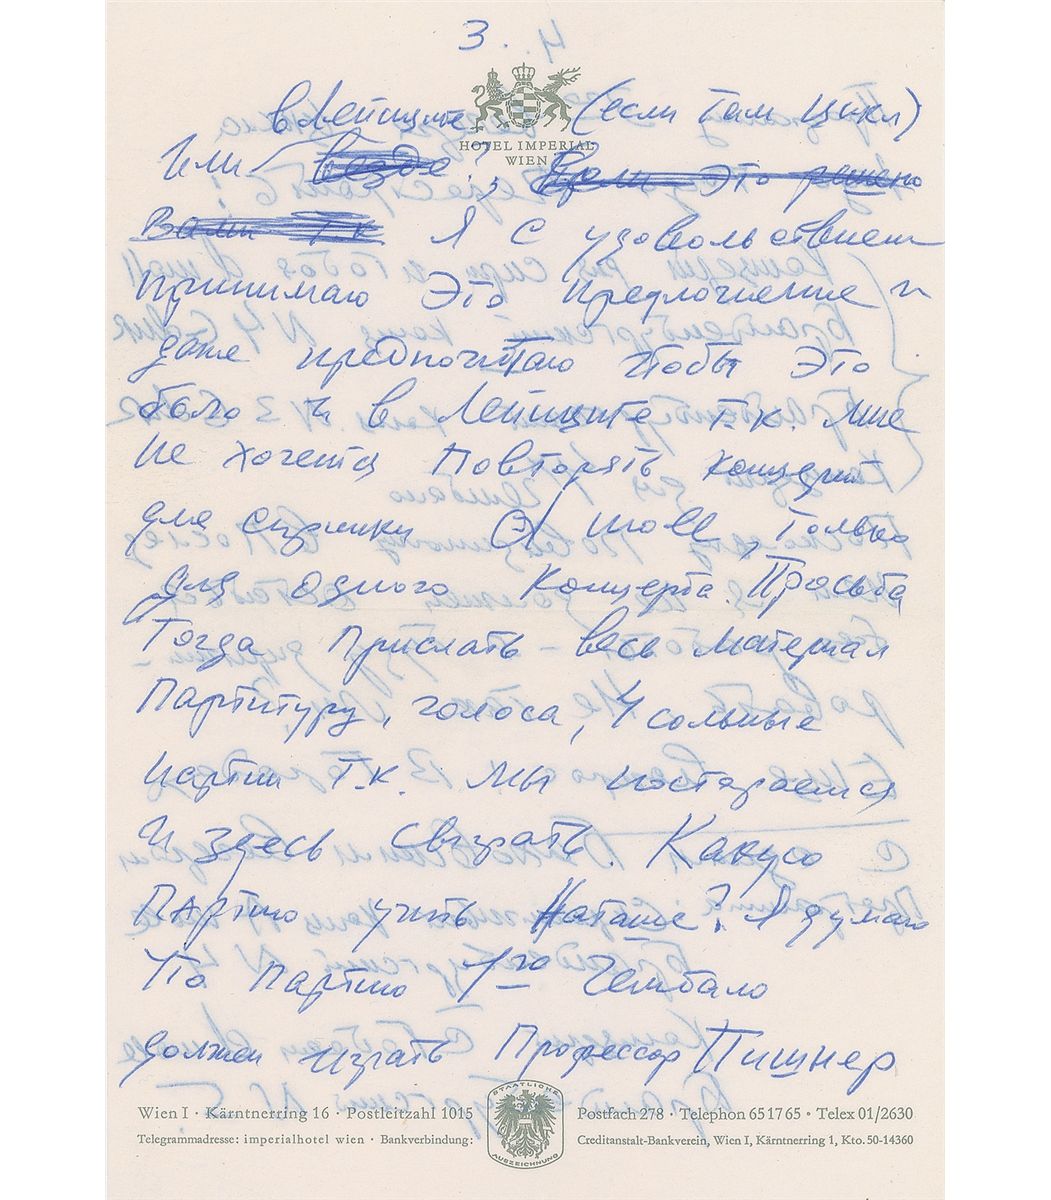 3.
в Лейпциге (если там цикл)
HOTEL IMPERIAL
WIEN
Или везде?, Если это решено
Вами т.к Я с удовольствием
принимаю Это предложение и
даже предпочитаю чтобы Это
было и в Лейпциге т.к. мне
не хочется повторять концерт
для скрипки d moll, только
для одного концерта. Просьба
Тогда прислать весь материал
Партитуру, голоса, 4 сольные
партии т.к. мы постараемся
и здесь сыграть. Какую
Партию учить Наташе? Я думаю
что партию 1го Чембало
должен играть Профессор Пишнер
STAATLICHE
AUSZEICHNUNG
Wien I · Kärntnerring 16 · Postleitzahl 1015 Postfach 278 · Telephon 65 17 65 · Telex 01/2630
Telegrammadresse: imperialhotel wien · Bankverbindung: Creditanstalt-Bankverein, Wien I, Kärntnerring 1, Kto. 50-14360